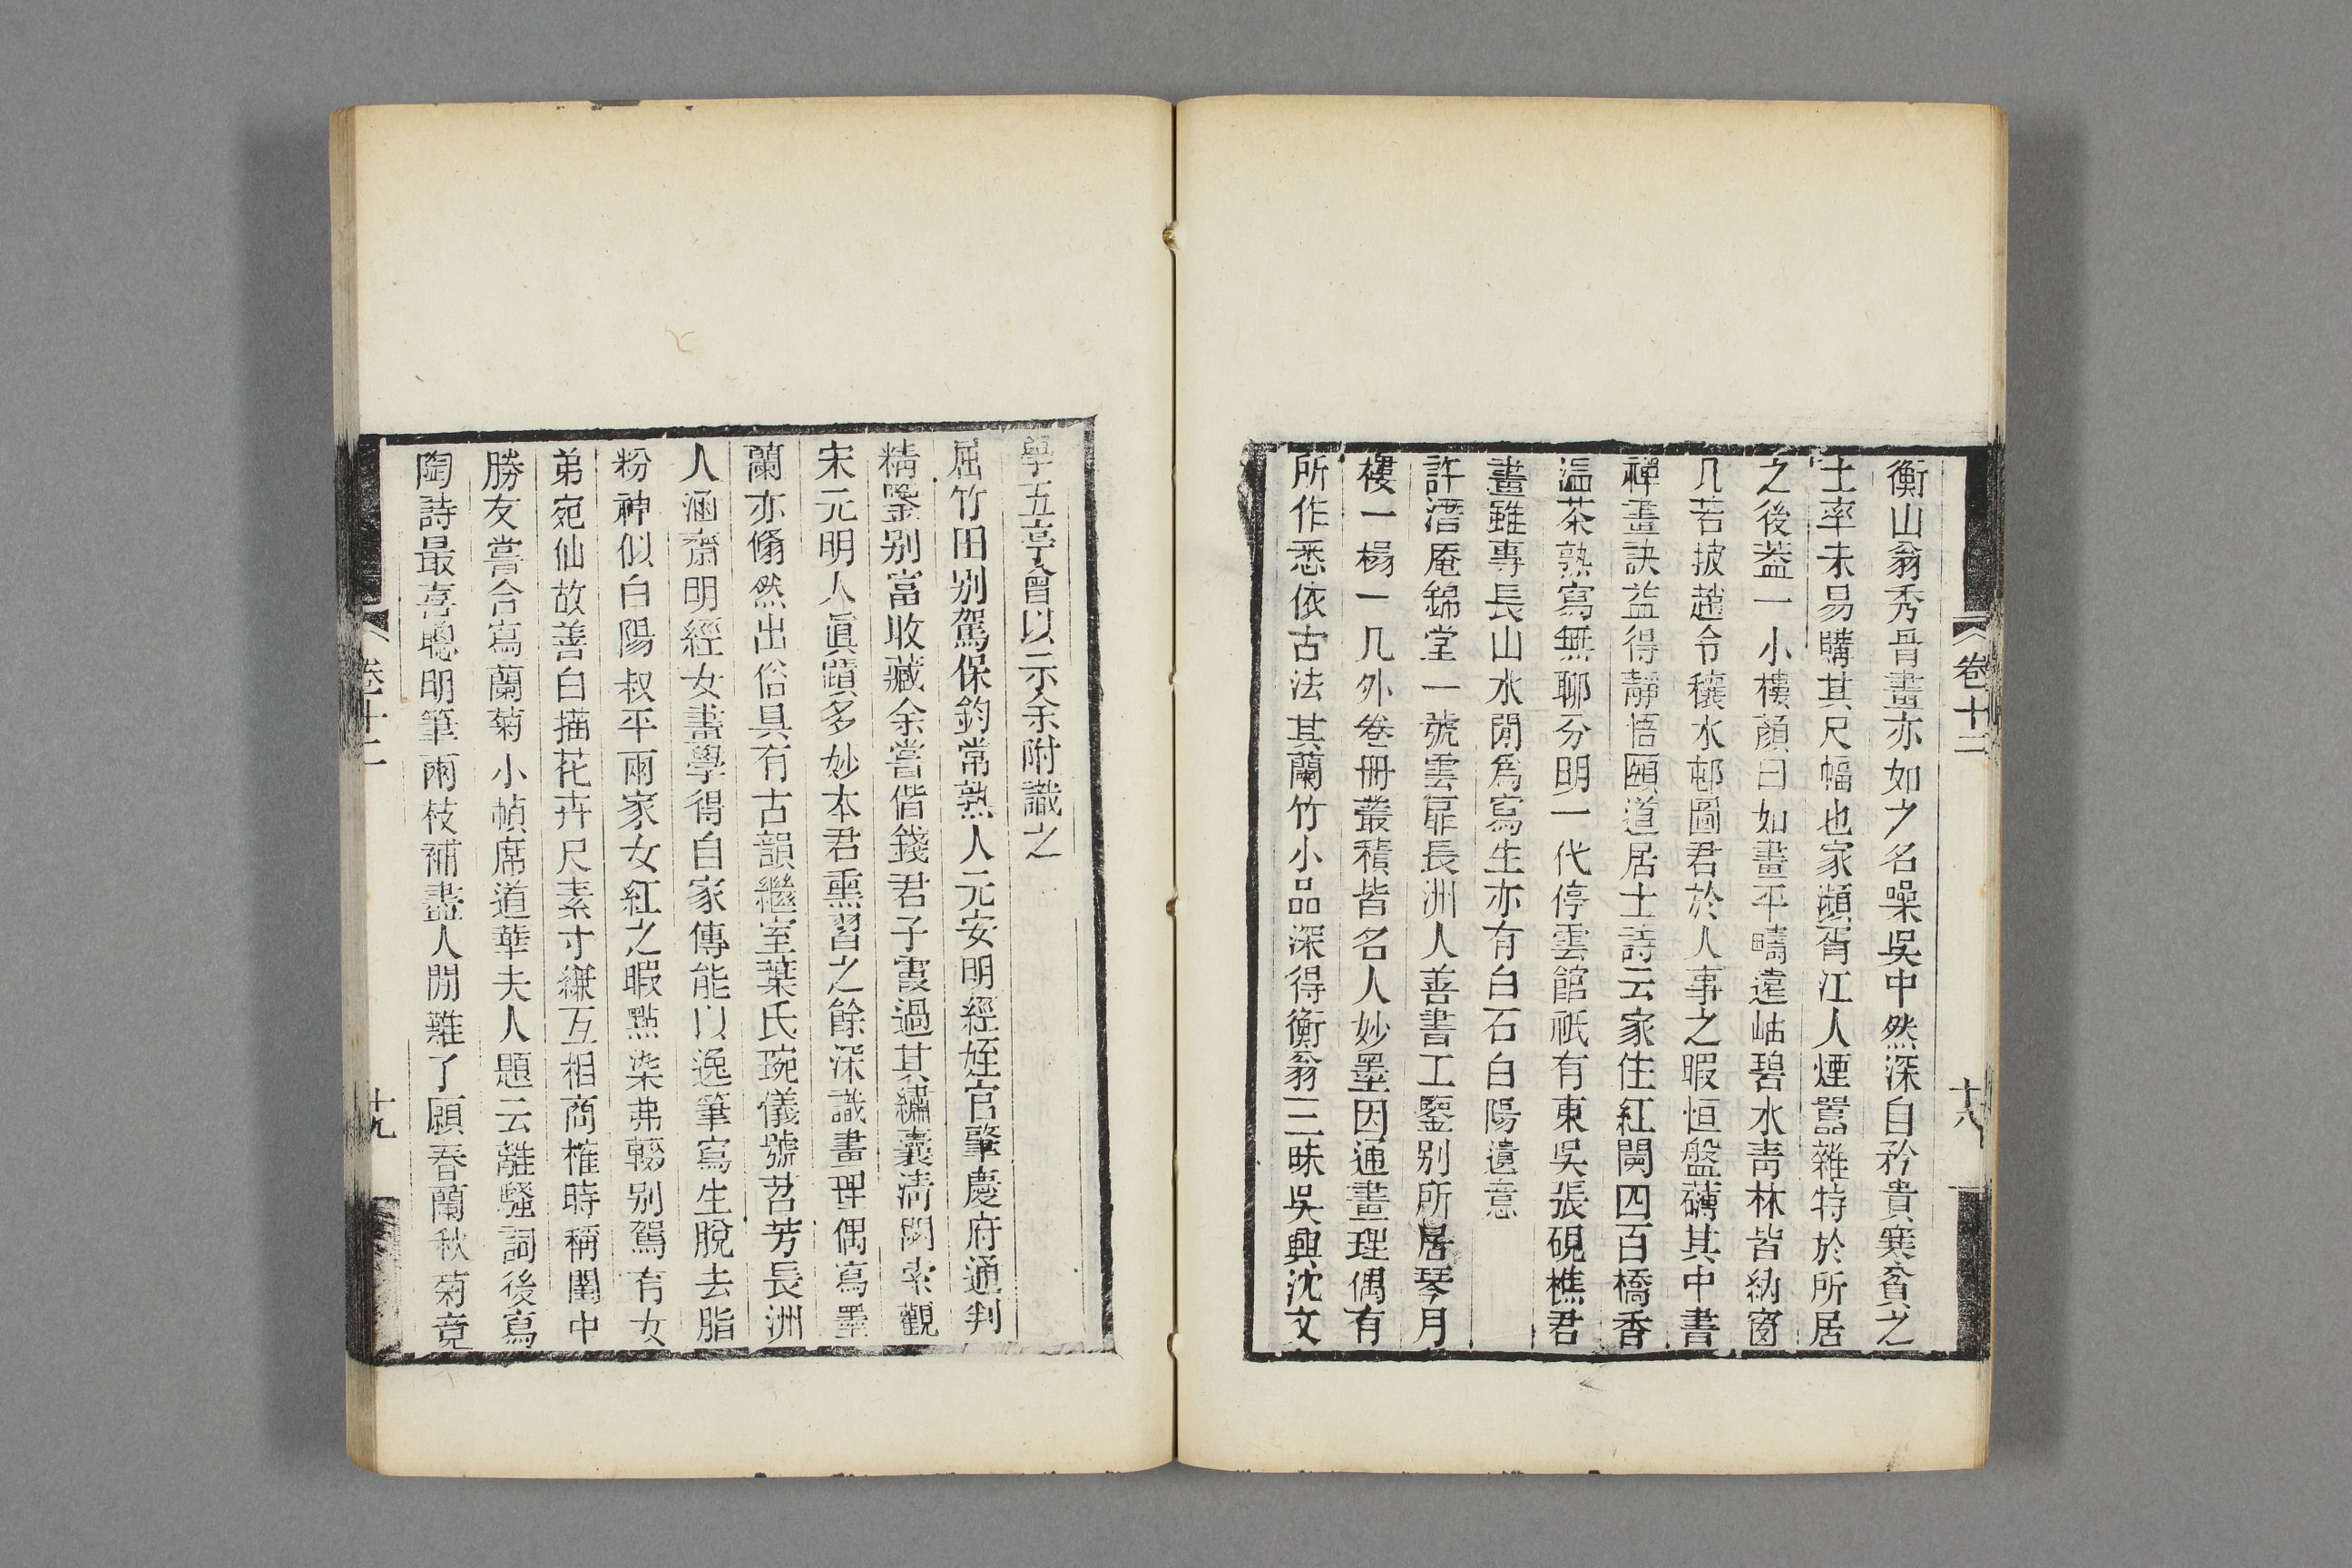 卷十二
十八
衡山翁秀骨畫亦如之名噪吳中然深自矜貴寒貧之
士率未易購其尺幅也家瀕胥江人煙囂雜特於所居
之後葢一小樓顏曰如畫平疇遠岫碧水靑林皆納窗
几若披趙令穰水邨圖君於人事之暇恒盤礴其中書
禪畫訣益得靜悟頤道居士詩云家住紅闌四百橋香
溫茶熟寫無聊分明一代停雲館祇有東吳張硯樵君
畫雖專長山水閒爲寫生亦有白石白陽遺意
許濳庵錦堂一號雲扉長洲人善書工鑒别所居琴月
樓一榻一几外卷冊叢積皆名人妙墨因通畫理偶有
所作悉依古法其蘭竹小品深得衡翁三昧吳興沈文
學五亭會以示余附識之
屈竹田别駕保鈞常熟人元安明經姪官肇慶府通判
精鑒别富收藏余嘗偕錢君子霞過其繡囊淸閟索觀
宋元明人眞蹟多妙本君熏習之餘深識畫理偶寫墨
蘭亦翛然出俗具有古韻繼室葉氏琬儀號苕芳長洲
人涵齋明經女畫學得自家傳能以逸筆寫生脫去脂
粉神似白陽叔平兩家女紅之暇點染弗輟别駕有女
弟宛仙故善白描花卉尺素寸縑互相商榷時稱閨中
勝友嘗合寫蘭菊小幀席道華夫人題云離騷詞後寫
陶詩最喜聰明筆兩枝補盡人閒難了願春蘭秋菊竟
卷十二
十九